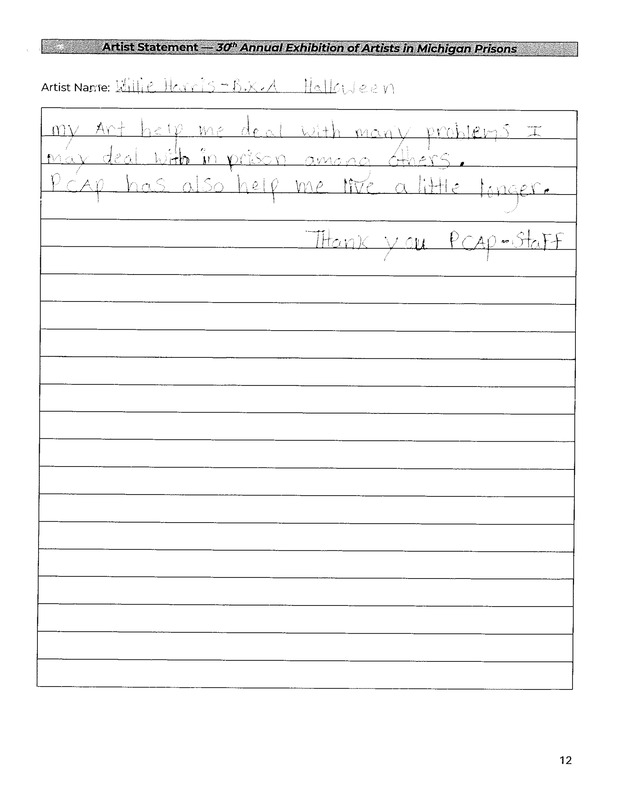 Artist Statement — 30th Annual Exhibition of Artists in Michigan Prisons
Artist Name: Willie Harris - B.K.A Halloween
my Art help me deal with many problems I
may deal with in prison among others.
PCAP has also help me live a little longer.
Thank you PCAP-Staff
12